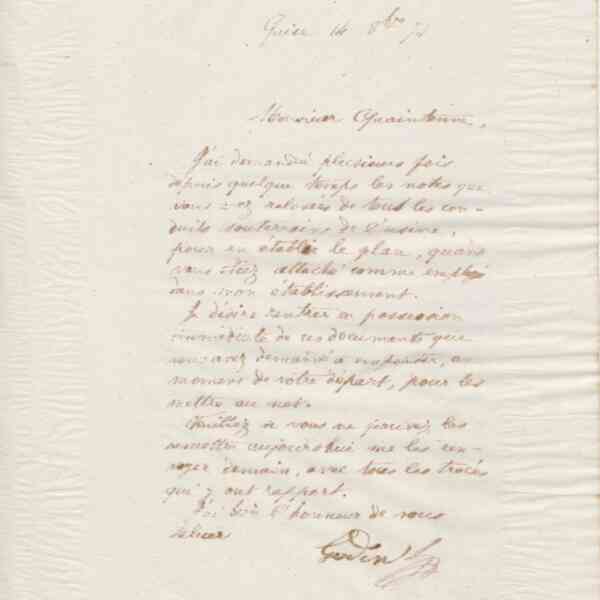 Guise 14 8bre 7
Monsieur Quaintenne,
J'ai demandé plusieurs fois
depuis quelque temps les notes que
vous avez relevées de tous les con-
duits souterrains de l'usine,
pour en établir le plan, quand
vous étiez attaché comme employé
dans mon établissement.
Je désire rentrer en possession
immédiate de ces documents que
vous avez demandé à emporter, au
moment de votre départ, pour les
mettre au net.
Veuillez si vous ne pouvez les
remettre aujourd'hui me les ren-
voyer demain, avec tous les tracés
qui y ont rapport.
J'ai bien l'honneur de vous
saluer
Godin